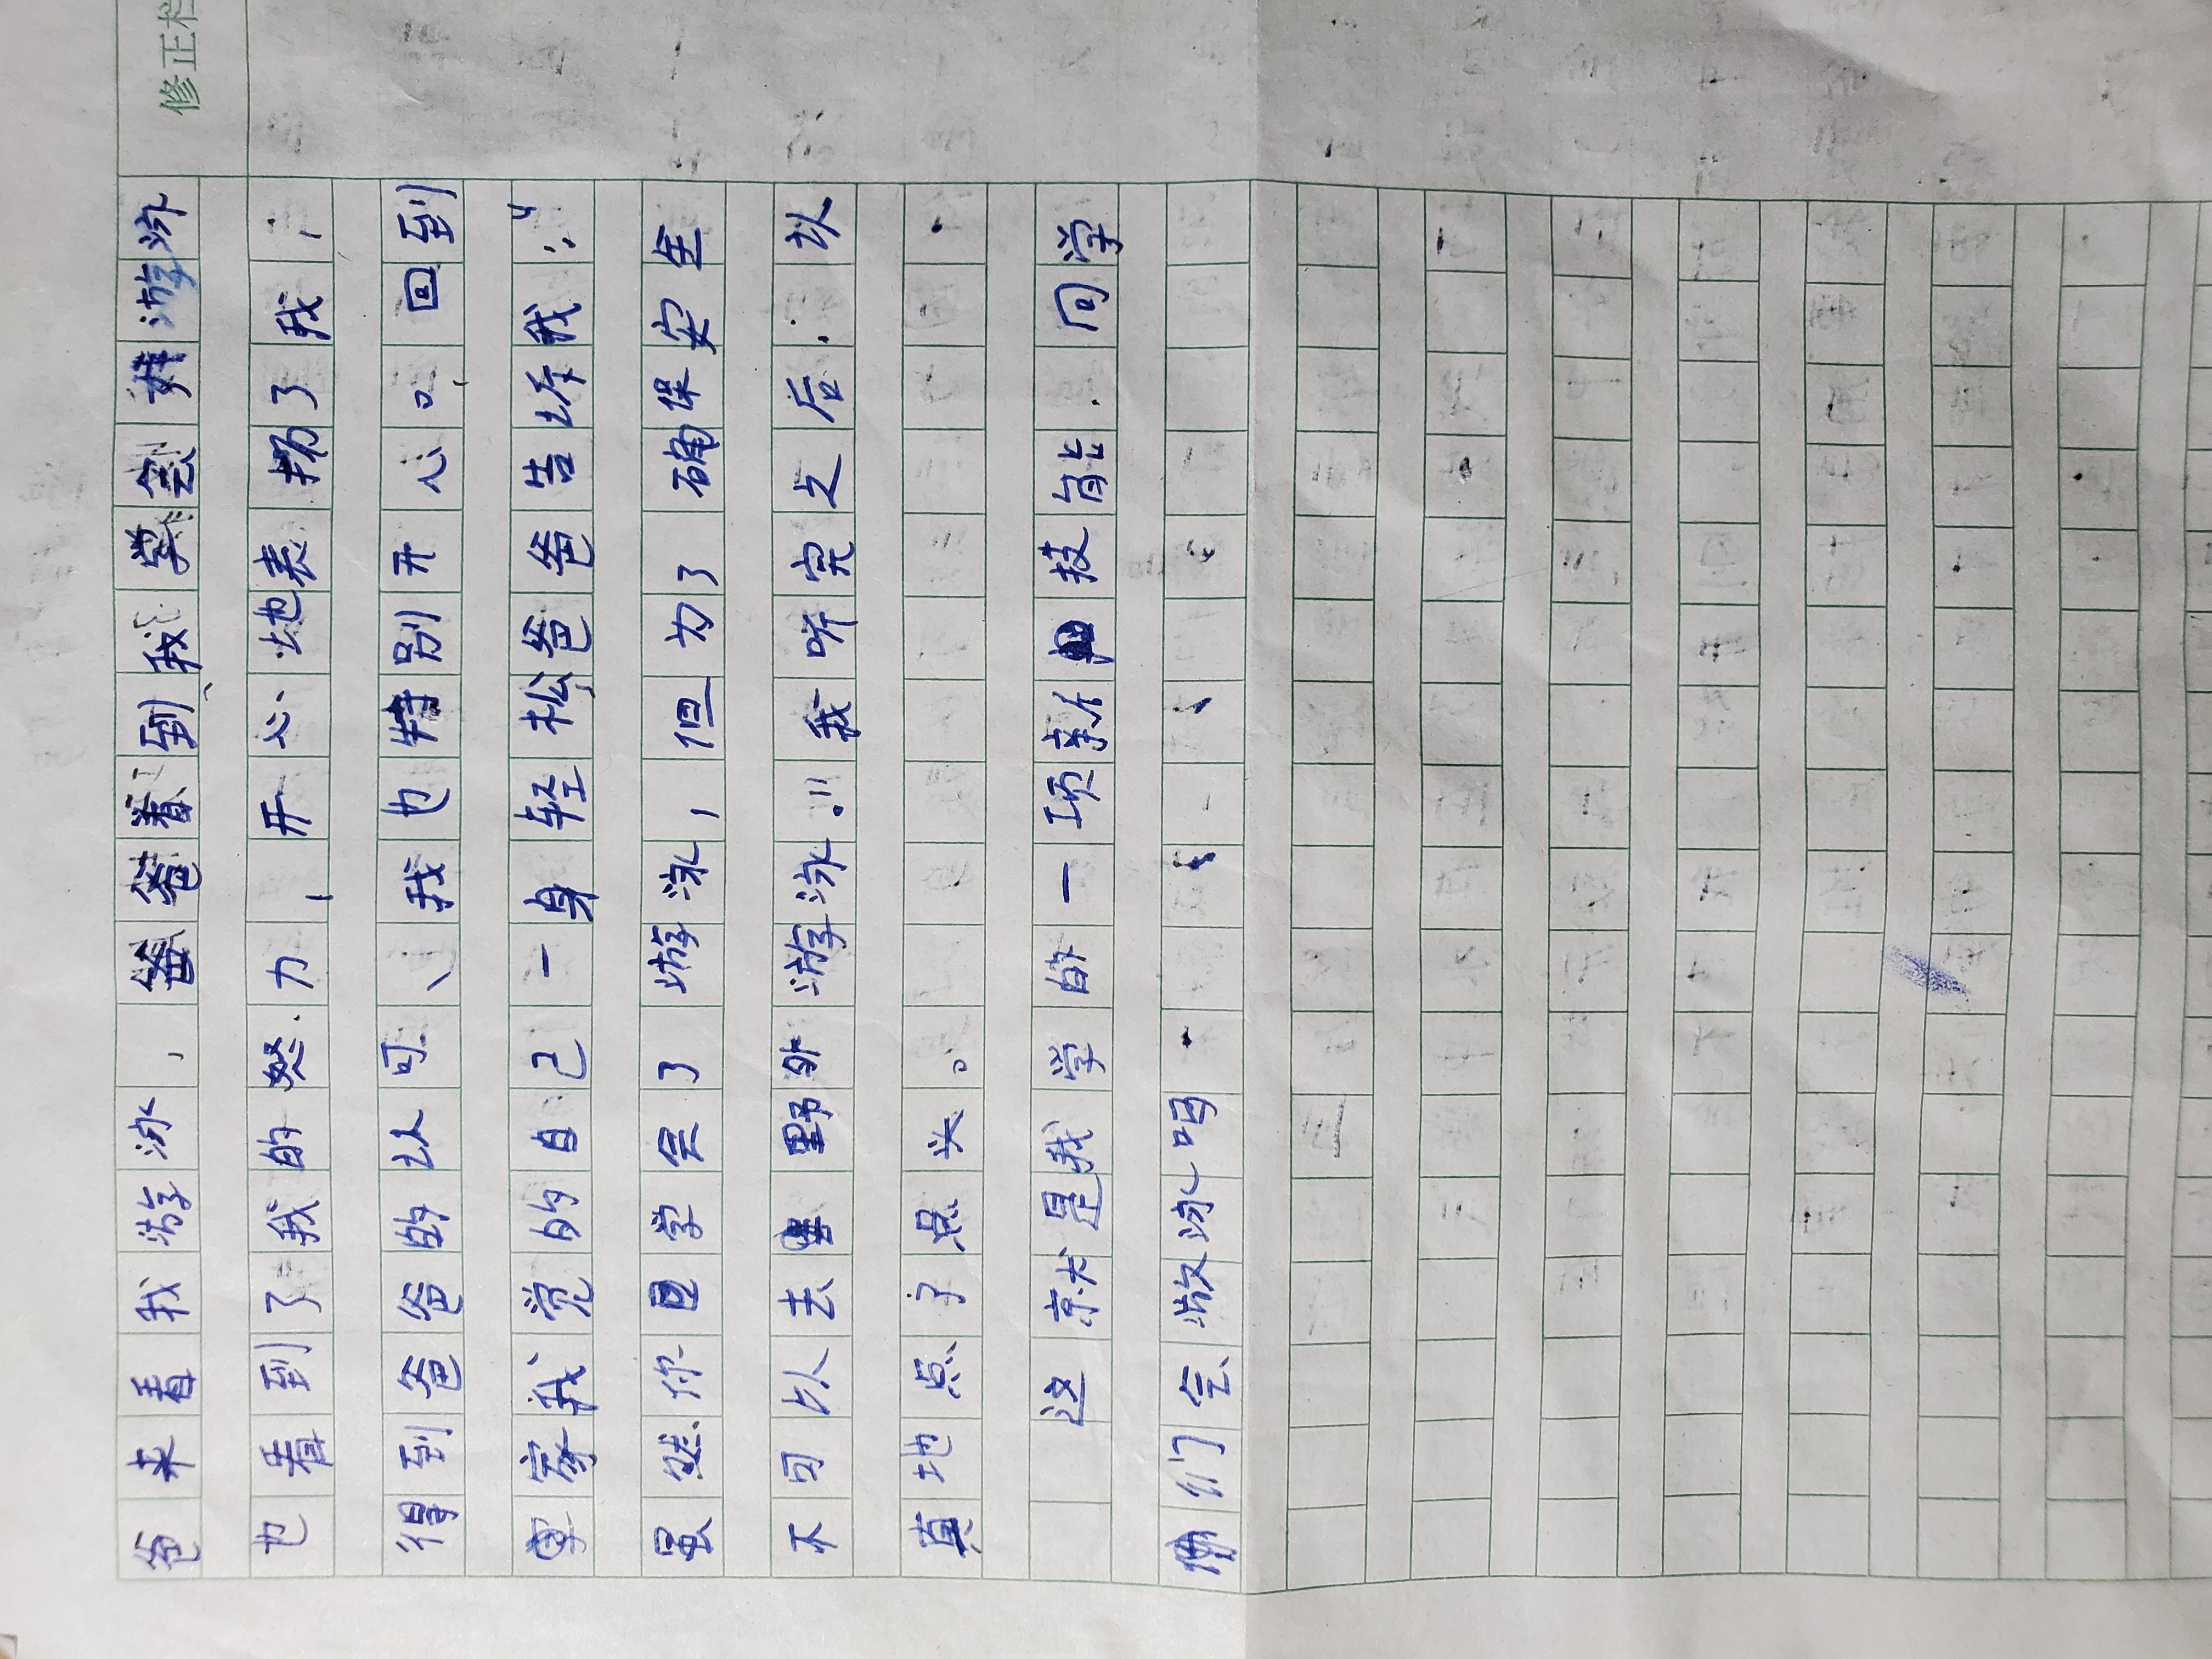 修正栏
爸来看我游泳，爸爸看到我学会游泳
也看到了我的努力，开心地表扬了我，
得到爸爸的认可、我也特别开心。回到
家我觉的自己一身轻松爸爸告诉我："
虽然你学会了游泳，但为了确保安全
不可以去野外游泳。"我听完之后：认
真地点了点头。
这就是我学的一项新技能．同学
们会游泳吗